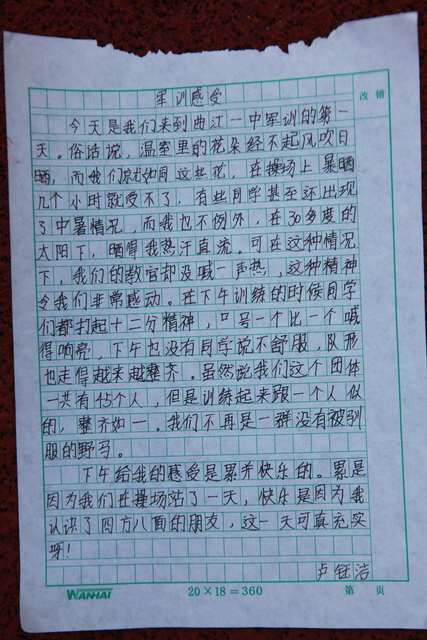 军训感受
改错
今天是我们来到曲江一中军训的第一
天。俗话说，温室里的花朵经不起风吹日
晒，而我们就如同这些花，在操场上暴晒
几个小时就受不了，有些同学甚至还出现
了中暑情况，而我也不例外，在30多度的
太阳下，晒得我热汗直流。可在这种情况
下，我们的教官却没喊一声热，这种精神
令我们非常感动。在下午训练的时候同学
们都打起十二分精神，口号一个比一个喊
得响亮，下午也没有同学说不舒服，队形
也走得越来越整齐。虽然说我们这个团体
一共有45个人，但是训练起来跟一个人似
的，整齐如一。我们不再是一群没有被驯
服的野马。
下午给我的感受是累并快乐的。累是
因为我们在操场站了一天，快乐是因为我
认识了四方八面的朋友，这一天可真充实
呀！
卢钰洁
WANHAI 20×18=360 第 页